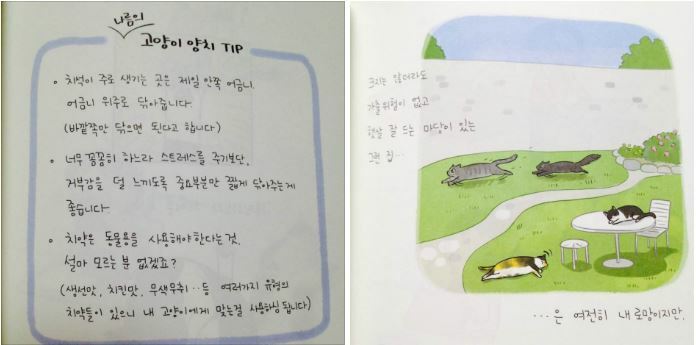 나름의
고양이 양치 TIP
치석이 주로 생기는 곳은 제일 안쪽 어금니.
어금니 위주로 닦아줍니다.
(바깥쪽만 닦으면 된다고 합니다)
너무 꼼꼼히 하느라 스트레스를 주기보단,
거부감을 덜 느끼도록 중요부분만 짧게 닦아주는게
좋습니다.
치약은 동물용을 사용해야한다는 것,
설마 모르는 분 없겠죠?
(생선맛, 치킨맛, 무색무취‥등 여러가지 유형의
치약들이 있으니 내 고양이에게 맞는걸 사용하심 됩니다)
크지는 않더라도
가출위험이 없고
햇살 잘 드는 마당이 있는
그런 집…
…은 여전히 내 로망이지만,